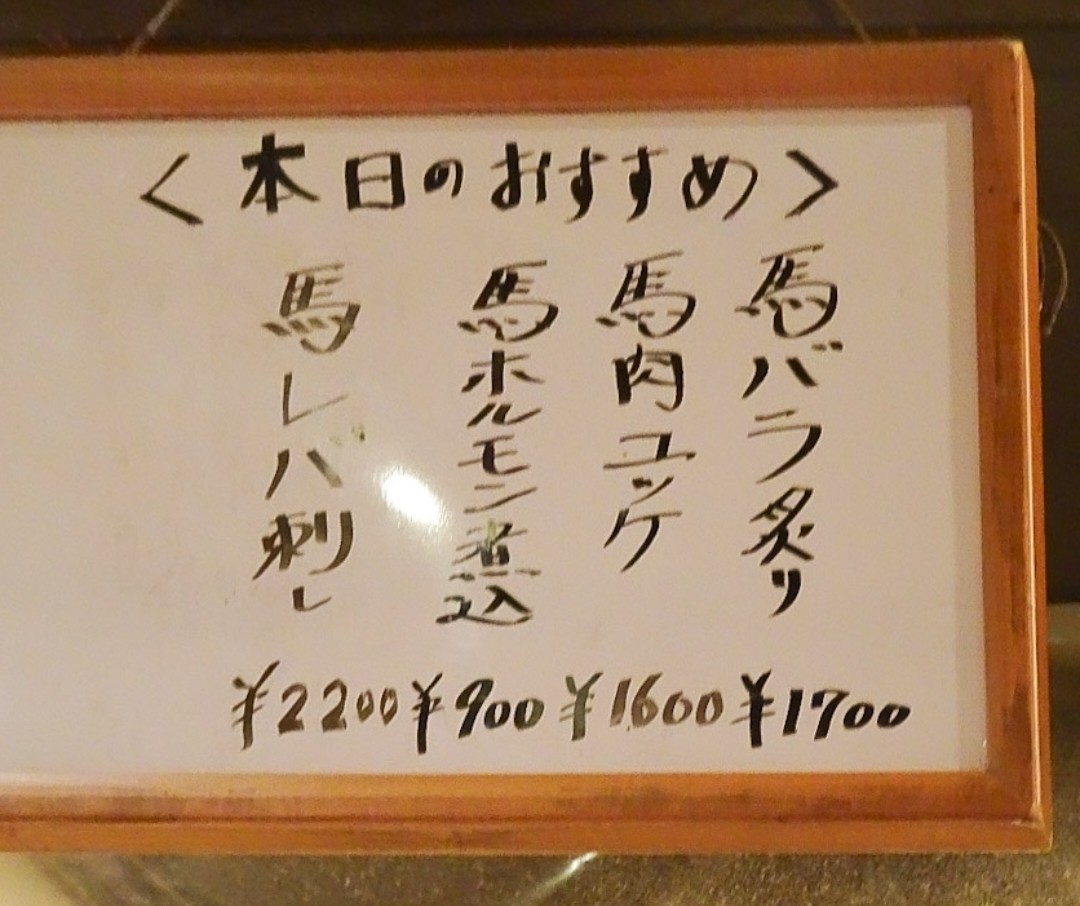 <本日のおすすめ>
馬バラ炙り
¥1700
馬肉ユッケ
¥1600
馬ホルモン煮込
¥900
馬レバ刺し
¥2200